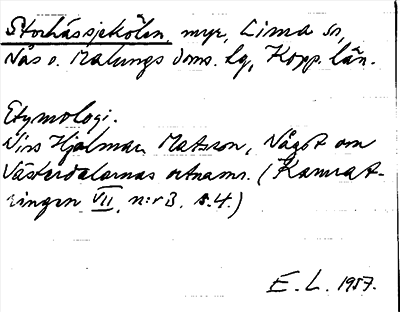 Storhåssjekölen, myr, Lima sn,
Nås o. Malungs doms. lg, Kopp. län.
Etymologi.
Hjalmar Matsson, Något om
Västerdalarnas ortnamn. (Kamrat-
ringen VII, n:r 3, s. 4.)
E. L. 1957.